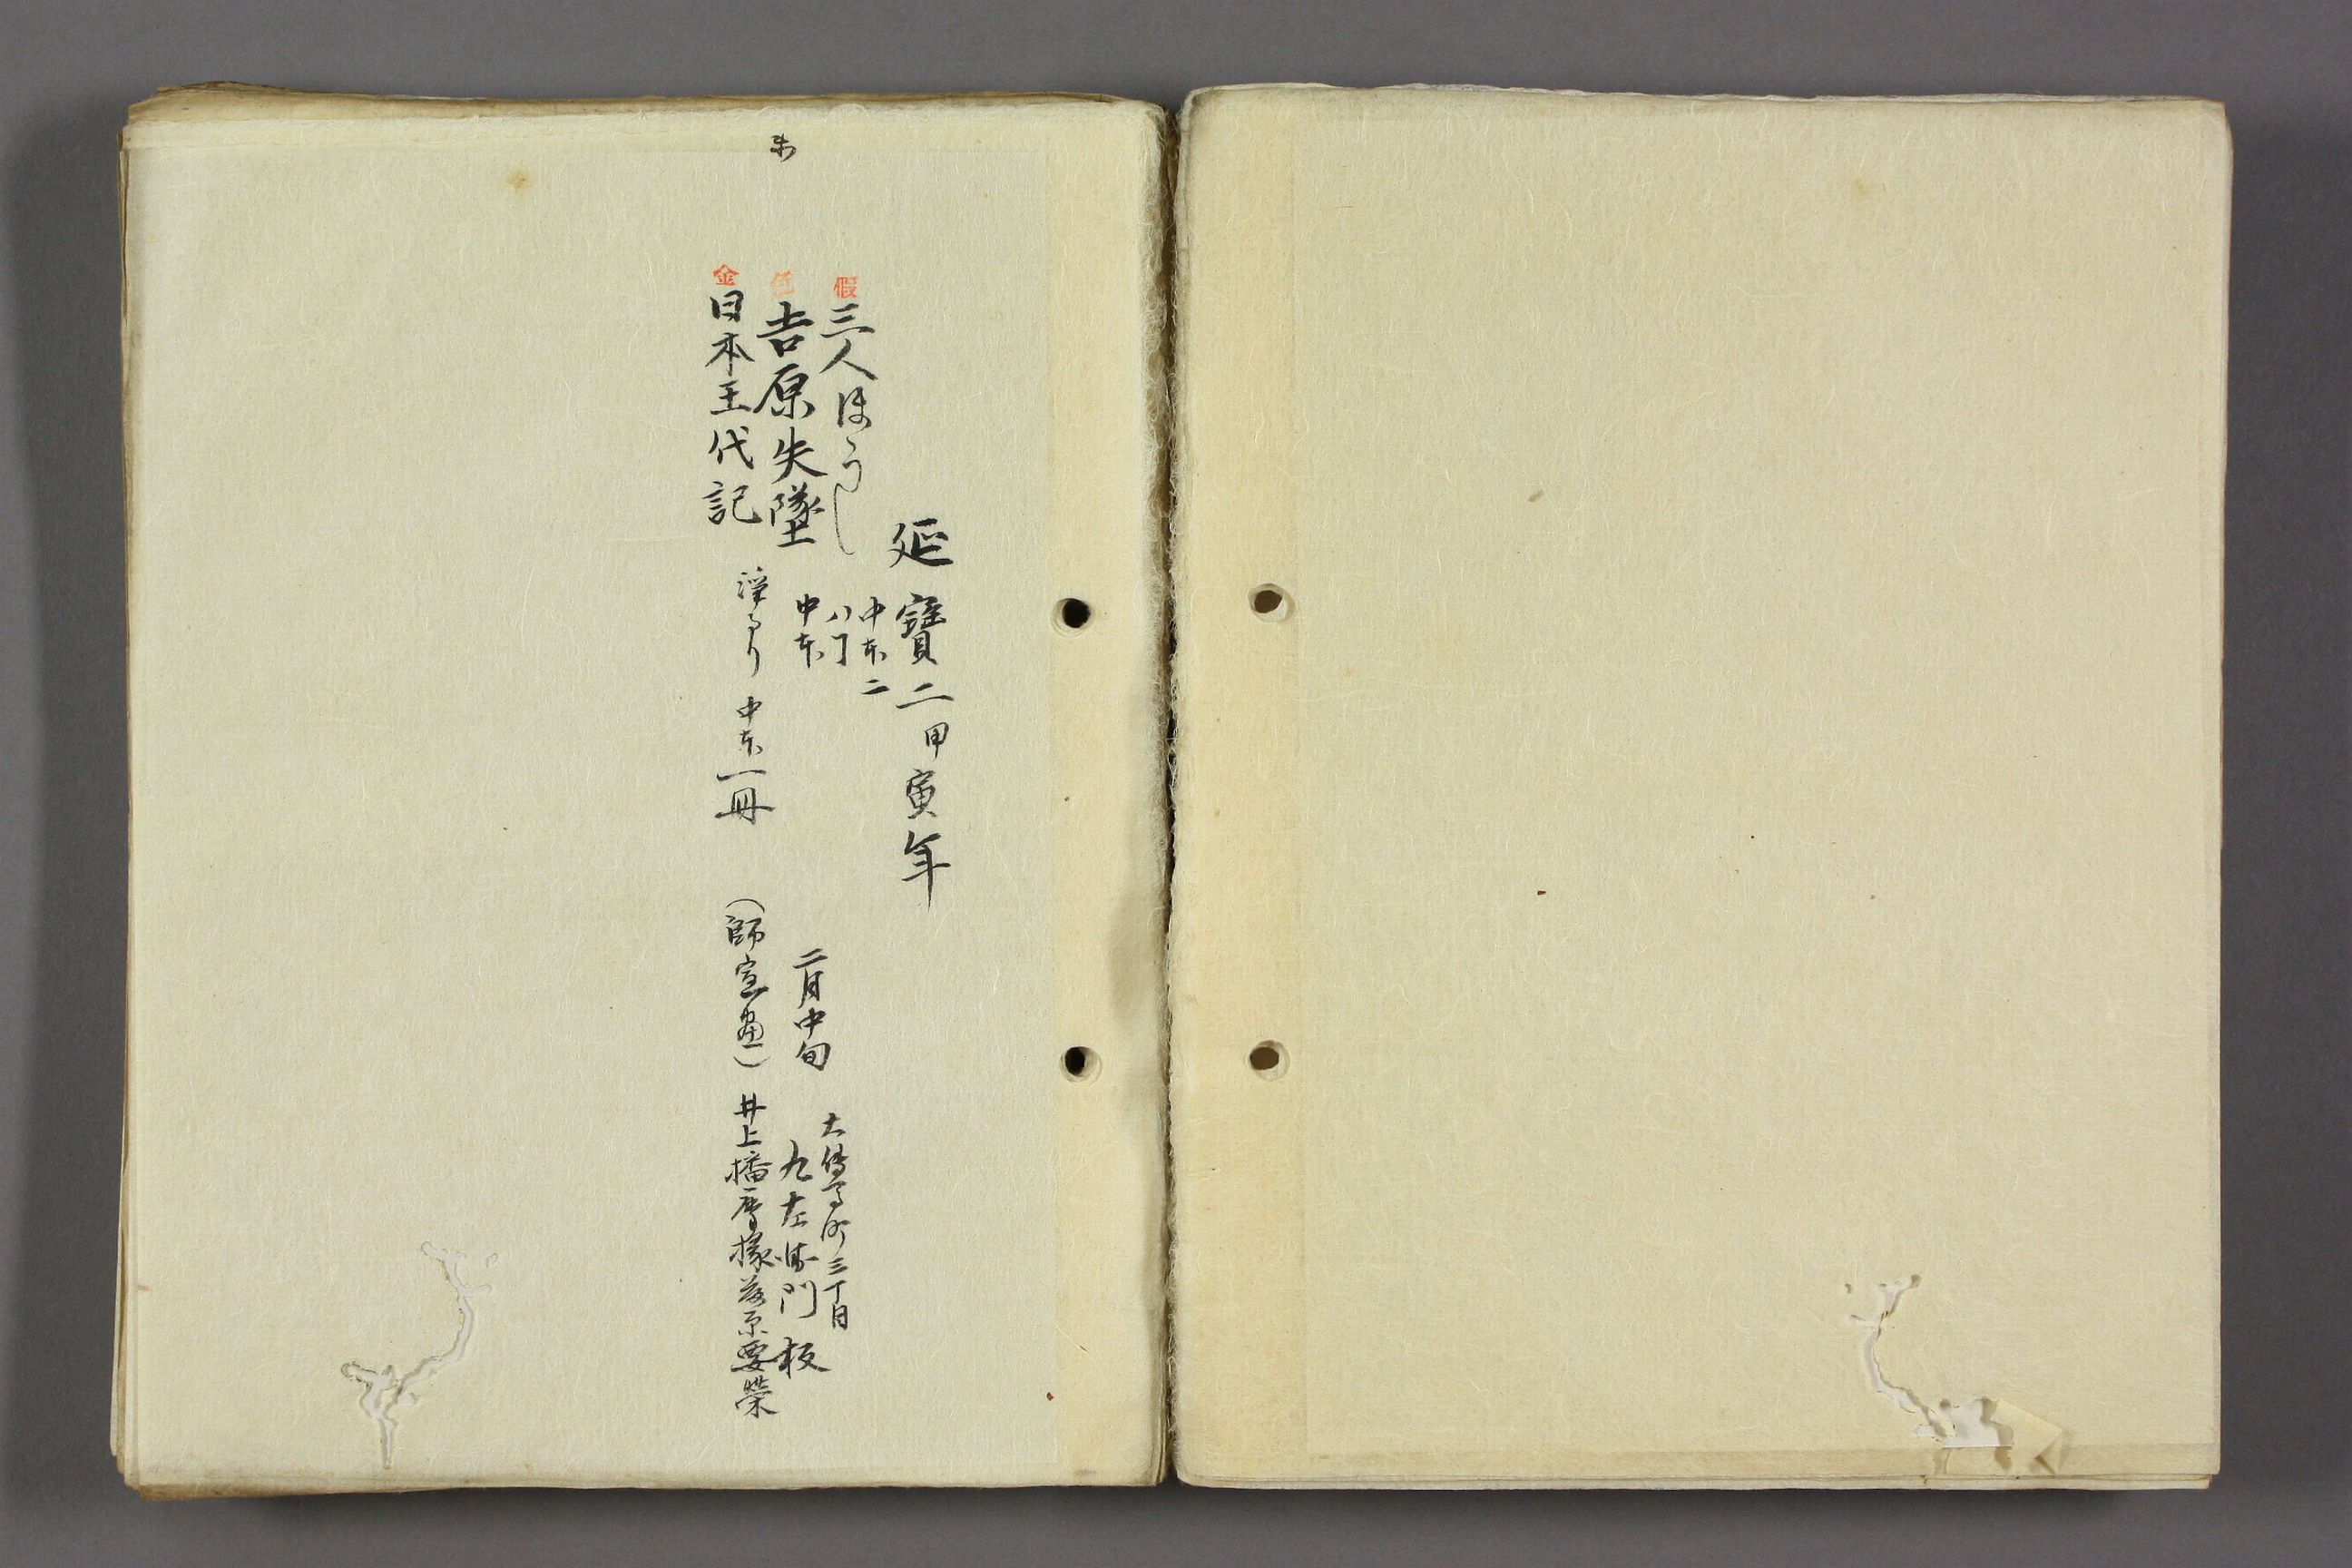 延寶二甲寅年
假 三人ほうし 中本二
吉原失墜 中本 二月中旬 大傳馬町三丁目
九左衛門板
金 日本王代記 浄るり 中本一冊 (師宣画) 井上播磨掾藤原要榮